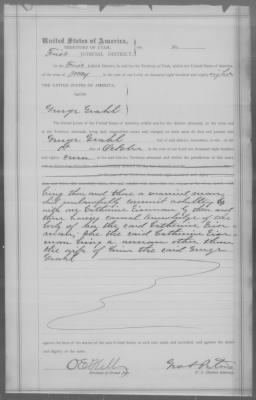 United States of America,
TERRITORY OF UTAH, ss. No.
First JUDICIAL DISTRICT.
In the First Judicial District, in and for the Territory of Utah, within the United States of America
of May in the year of our Lord, one thousand eight hundred and eighty eight
THE UNITED STATES OF AMERICA,
AGAINST
George Grahl
The Grand Jurors of the United States of America, within and for the district aforesaid, in the
in the Territory aforesaid, being duly impaneled sworn and charged on their oaths do find and present that
George Grahl
1st day of October in the year of our Lord one thousand eight hundred and
eighty seven in the said district, Territory aforesaid, and within the jurisdiction of this court,
being then and there a married man
did unlawfully commit adultery by
with one Catherine by then and
there having carnal knowledge of the
body of her the said Catherine
she the said Catherine
being a woman other than
the wife of him the said George
Grahl
against the form of the statute of the said United States in such case made and provided, and against the peace
and dignity of the same.
Foreman of Grand Jury.
U. S. District Attorney.